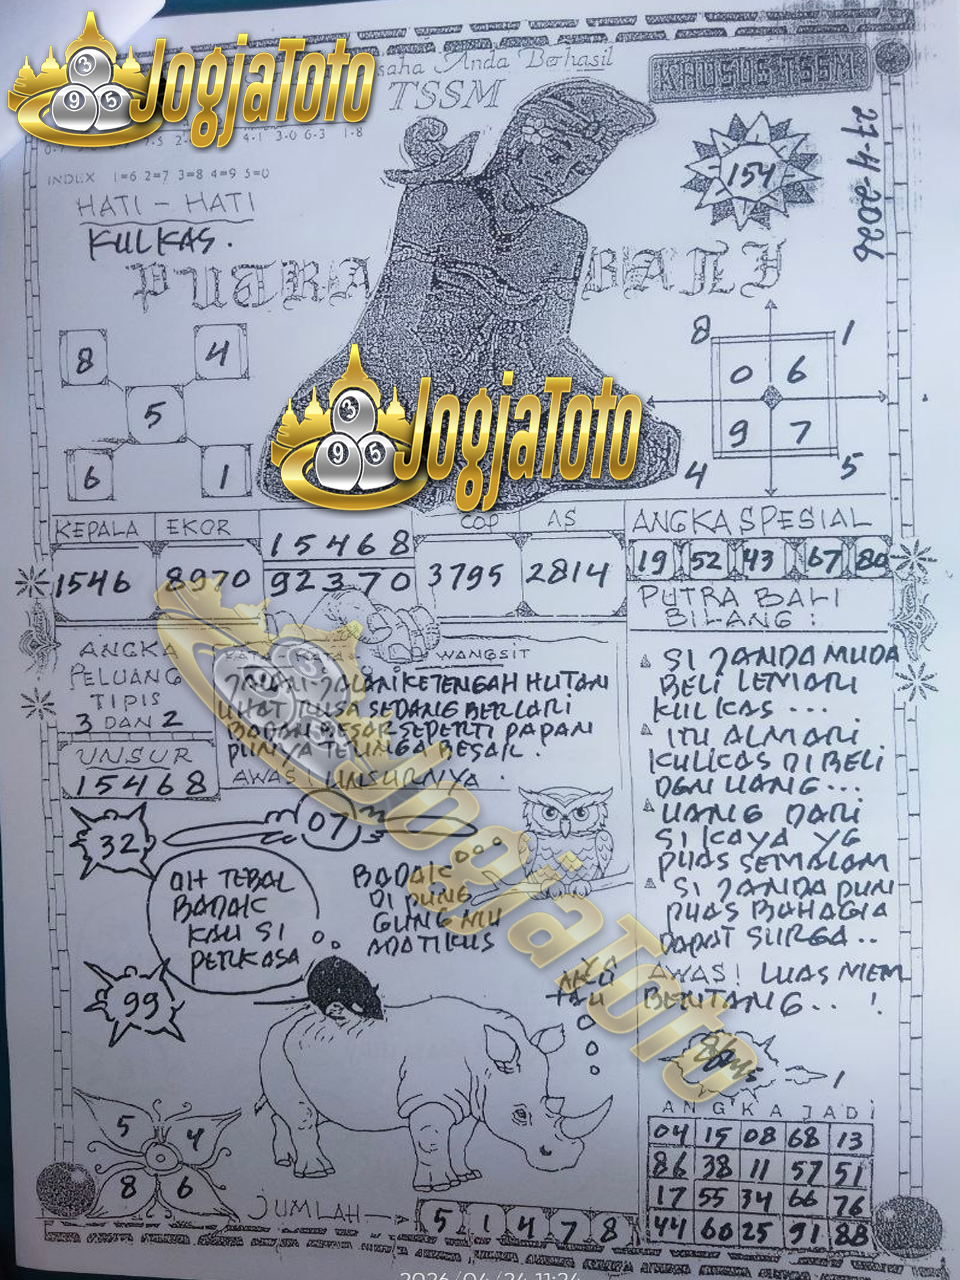 JogjaToto
3
9 5
saha Anda Berhasil
TSSM
KHUSUS TSSM
27-4-2026
4-1 3-0 6-3 1-8
INDEX 1=6 2=7 3=8 4=9 5=0
HATI - HATI
KULKAS.
154
PUTRA BALI
8 4
5
6 1
8 1
0 6
9 7
4 5
JogjaToto
3
9 5
KEPALA EKOR
1546 8970
15468
92370
COP AS
3795 2814
ANGKA SPESIAL
19 52 43 67 80
PUTRA BALI
BILANG :
ANGKA
PELUANG
TIPIS
3 DAN 2
UNSUR
15468
WANGSIT
JALAN-JALAN KETENGAH HUTAN
LIHAT RUSA SEDANG BERLARI
BADAN BESAR SEPERTI PAPAN
PUNYA TELINGA BESAR.
AWAS! UNSURNYA.
SI JANDA MUDA
BELI LEMARI
KULKAS ...
ITU ALMARI
KULKAS DI BELI
DGN UANG...
UANG DARI
SI KAYA YG
PUAS SEMALAM
SI JANDA PUN
PUAS BAHAGIA
DAPAT SURGA..
AWAS! LUAS MEM
BENTANG... !
32
07
OH TEBAL
BADAK
KAU SI
PERKASA
BADAK
DI PUNG
GUNG MU
ADA TIKUS
99
YA
AKU
TAU
JogjaToto
5 4
8 6
JUMLAH
5 1 4 7 8
ANGKA JADI
04 15 08 68 13
86 38 11 57 51
17 55 34 66 76
44 60 25 91 88
2026/04/24 11:24